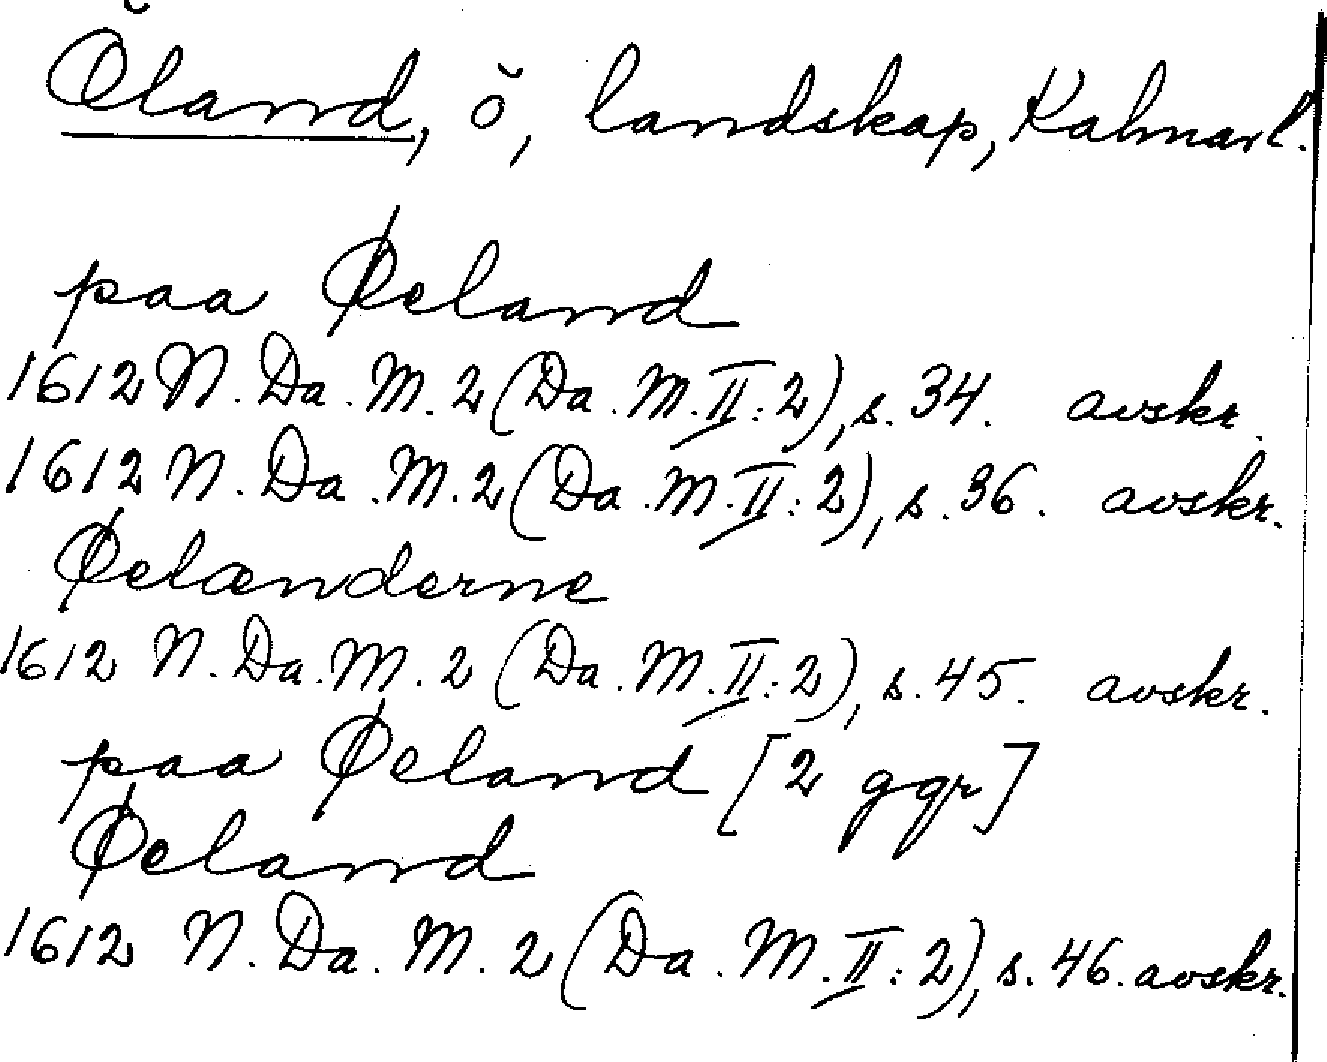 Öland, ö, landskap, Kalmarl.
paa Øeland
1612 N. Da. M. 2 (Da. M. II: 2), s. 34. avskr.
1612 N. Da. M. 2 (Da. M. II: 2), s. 36. avskr.
Øelænderne
1612 N. Da. M. 2 (Da. M. II: 2), s. 45. avskr.
paa Øeland [2 ggr]
Øeland
1612 N. Da. M. 2 (Da. M. II: 2), s. 46. avskr.